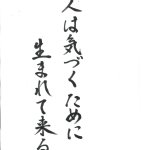 人は気づくために
生まれて来る